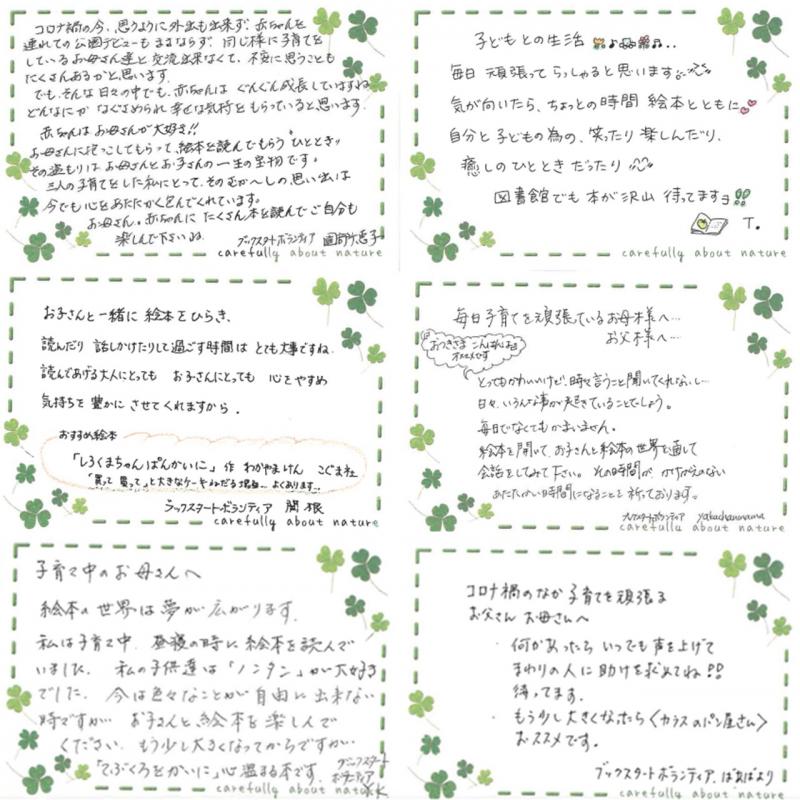 コロナ禍の今、思うように外出も出来ず、赤ちゃんを
連れての公園デビューもままならず、同じ様に子育てを
しているお母さん達と交流出来なくて、不安に思うことも
たくさんあるかと思います。
でも、そんな日々の中でも、赤ちゃんはぐんぐん成長していますね。
どんなにかなぐさめられ幸せな気持をもらっていると思います。
赤ちゃんはお母さんが大好き!!
お母さんに抱っこしてもらって、絵本を読んでもらうひととき。
その温もりはお母さんとお子さんの一生の宝物です。
三人の子育てをした私にとって、そのむか〜しの思い出は
今でも心をあたたかく包んでくれています。
お母さん、赤ちゃんにたくさん本を読んでご自分も
楽しんで下さいね。
ブックスタートボランティア 園部恵子
carefully about nature
子どもとの生活
毎日 頑張ってらっしゃると思います
気が向いたら、ちょっとの時間 絵本とともに
自分と子どもの為の、笑ったり 楽しんだり、
癒しのひとときだったり
図書館でも 本が沢山 待ってますョ
T.
carefully about nature
お子さんと一緒に 絵本をひらき、
読んだり 話しかけたりして過ごす時間は とても大事ですね。
読んであげる大人にとっても お子さんにとっても 心をやすめ
気持ちを豊かに させてくれますから。
おすすめ絵本
「しろくまちゃんぱんかいに」 作 わかやまけん こぐま社
「買って 買って」と大きなケーキねだる場面… よくあります…
ブックスタートボランティア 関根
carefully about nature
毎日子育てを頑張っているお母様へ…
お父様へ…
おつきさまこんばんは
オススメです
とってもかわいいけど、時々言うこと聞いてくれないし…
日々、いろんな事が起きていることでしょう。
毎日でなくてもかまいません。
絵本を開いて、お子さんと絵本の世界を通して
会話をしてみて下さい。その時間が、かけがえのない
あたたかい時間になることを祈っております。
ブックスタートボランティア
carefully about nature
子育て中のお母さんへ
絵本の世界は夢が広がります。
私は子育て中、昼寝の時に絵本を読んで
いました。私の子供達は「ノンタン」が大好き
でした。今は色々なことが自由に出来ない
時ですが お子さんと絵本を楽しんで
ください。もう少し大きくなってからですが…
「てぶくろをかいに」心温まる本です。
ブックスタート
ボランティア
carefully about nature
コロナ禍のなか子育てを頑張る
お父さん お母さんへ
・何かあったら いつでも声を上げて
まわりの人に助けを求めてね!!
待ってます。
・もう少し大きくなったら〈カラスのパン屋さん〉
おススメです。
ブックスタートボランティア ばぁばより
carefully about nature